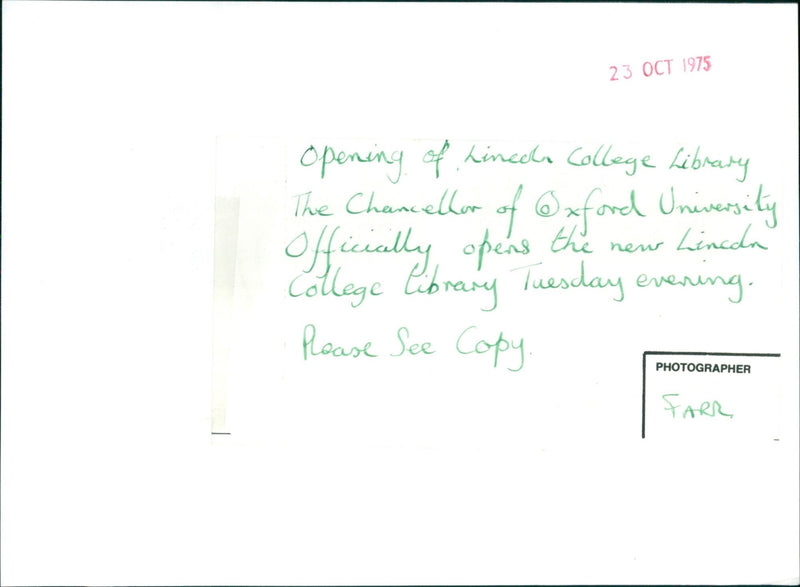 23 OCT 1975
Opening of Lincoln College Library
The Chancellor of Oxford University
Officially opens the new Lincoln
College Library Tuesday evening.
Please See Copy.
PHOTOGRAPHER
FARR